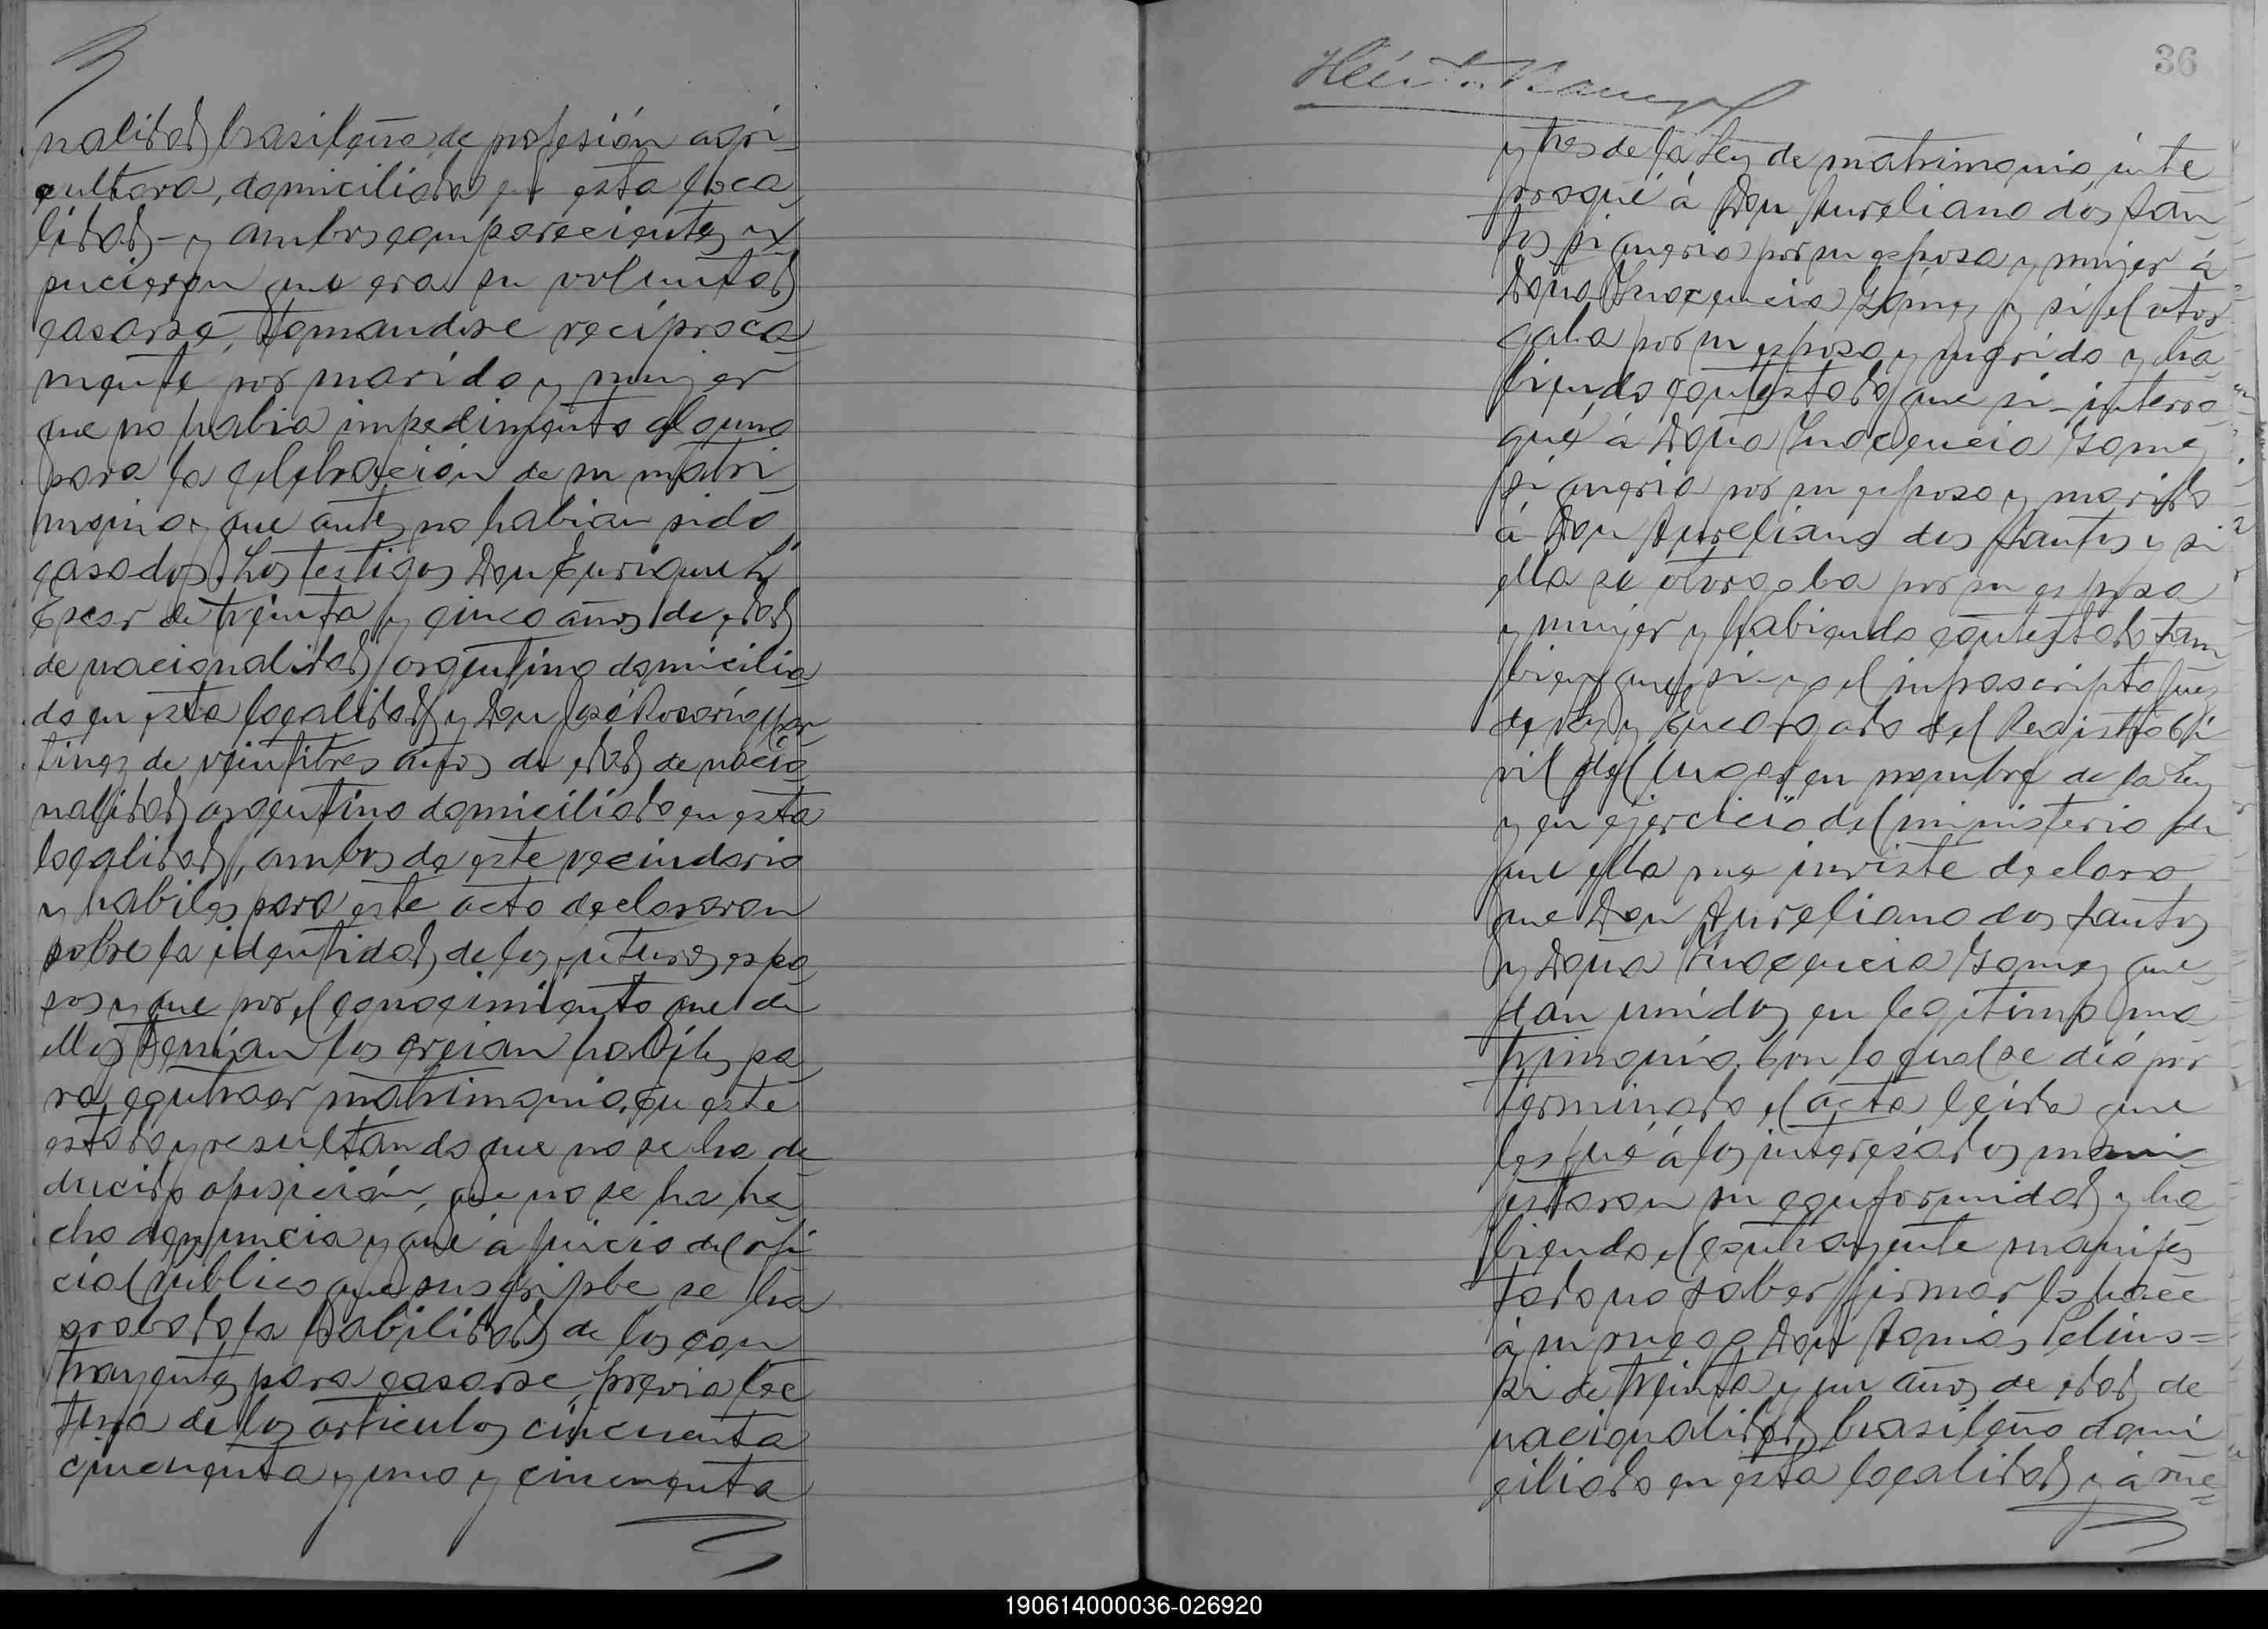 nalidad brasileña, de profesión agri-
cultora, domiciliada en esta loca
lidad - y ambos comparecientes ex
pucieron que era su voluntad
casarse, tomandose reciproca
mente por marido y mujer
que no habia impedimento alguno
para la celebración de su matri
monio y que antes no habian sido
casados. Los testigos Don Enrique L.
Escor de treinta y cinco años de edad
de nacionalidad argentino domicilia
do en esta localidad y Don José Rosario Mar
tinez de veintitres años de edad de nacio
nalidad argentino domiciliado en esta
localidad, ambos de este vecindario
y habiles para este acto declararon
sobre la identidad de los futuros espo
sos y que por el conocimiento que de
ellos tenian los creian habiles pa
ra contraer matrimonio. En este
estado y resultando que no se ha de
ducido oposición, que no se ha he
cho denuncia y que á juicio del ofi
cial público que suscripbe se ha
probado la habilidad de los con
trayentes para casarse, previa lec
tura de los articulos cincuenta
cincuenta y uno y cincuenta
36
y tres de la Ley de matrimonio, inte
rrogué á Don Aureliano dos San
tos si queria por su esposa y mujer á
Doña Inocencia Gomez y si el otor
gaba por su esposo y marido y ha
biendo contestado que si - interro
gué á Doña Inocencia Gomez
si queria por su esposo y marido
á Don Aureliano dos Santos y si
ella se otorgaba por su esposa
y mujer y habiendo contestado tam
bien que si - yo el infrascripto Juez
de Paz y Encargado del Registro Ci
vil del lugar en nombre de la Ley
y en ejercicio del ministerio de
que ella me inviste declaro
que Don Aureliano dos Santos
y Doña Inocencia Gomez que
dan unidos en legitimo ma
trimonio. Con lo cual se dió por
terminado el acta leida que
les fué á los interesados mani
festaron su conformidad y ha
biendo el contrayente manifes
tado no saber firmar lo hace
á su ruego Don Tomás Pelins=
ki de treinta y un años de edad de
nacionalidad brasileño domi
ciliado en esta localidad y á rue=
190614000036-026920